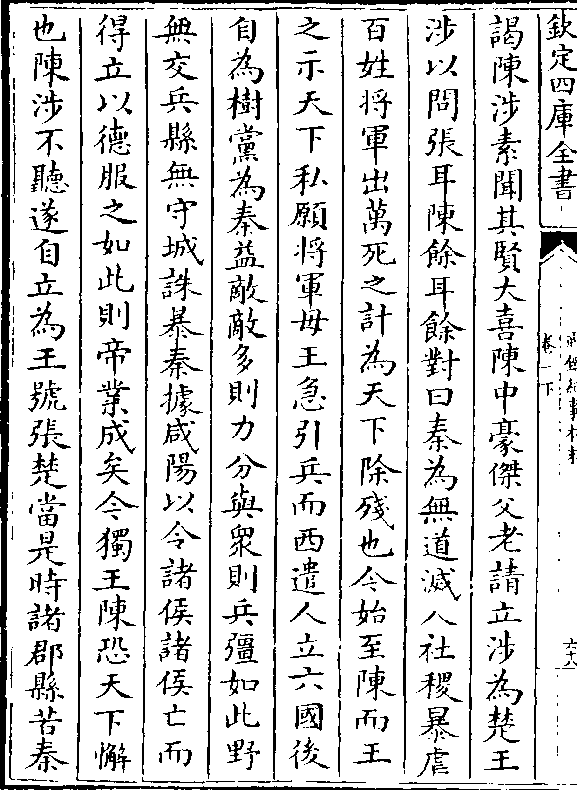 欽定四庫全書
卷一下
謁陳涉素聞其賢大喜陳中豪傑父老請立涉為楚王
涉以問張耳陳餘耳餘對曰秦為無道滅人社稷暴虐
百姓将軍出萬死之計為天下除殘也今始至陳而王
之示天下私願将軍毋王急引兵而西遣人立六國後
自為樹黨為秦益敵敵多則力分與衆則兵彊如此野
無交兵縣無守城誅暴秦據咸陽以令諸侯諸侯亡而
得立以德服之如此則帝業成矣今獨王陳恐天下懈
也陳涉不聽遂自立為王號張楚當是時諸郡縣苦秦